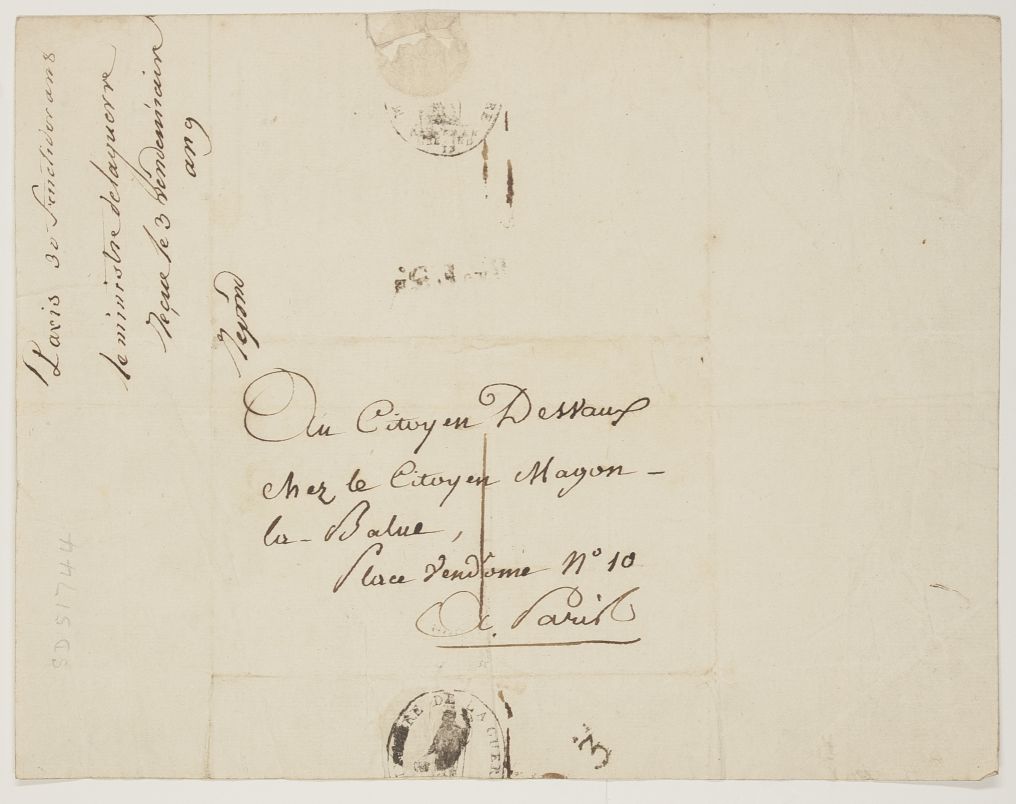 Paris 30 fructidor an 8
le ministre de la guerre
reçue le 3 vendemiaire
an 9
Au Citoyen Dessaux
chez le Citoyen Magon -
la - Balue,
Place Vendôme N° 10
A Paris
SD 51744
DE LA GUER
3